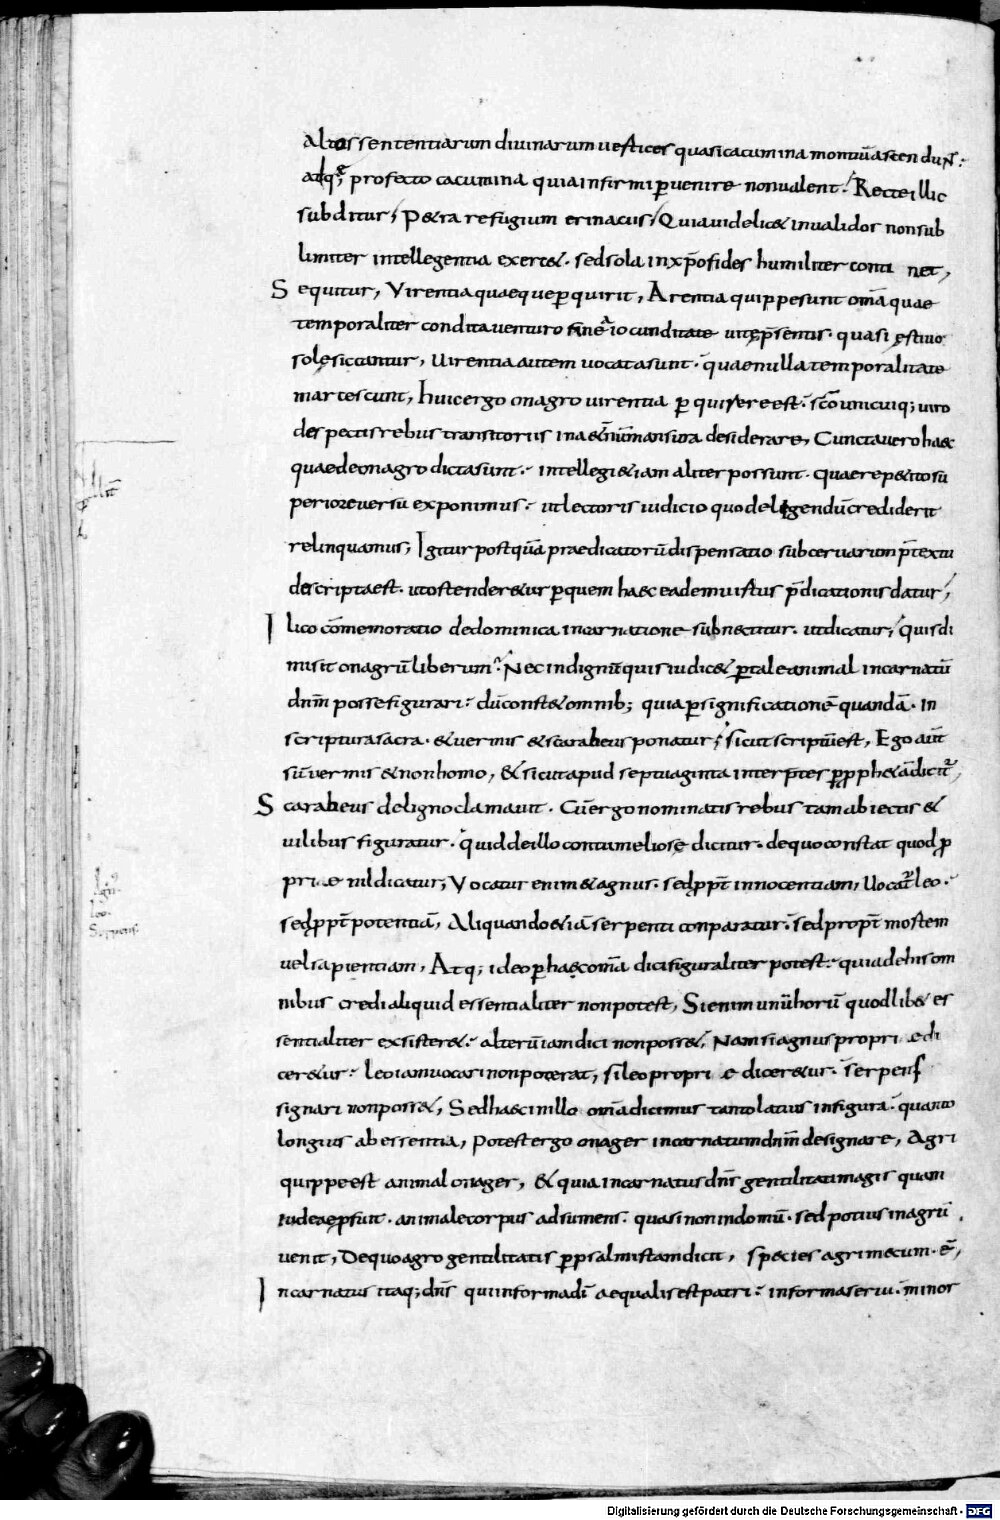 Altas sententiarum divinarum vertices quasi cacumina montiū ascendunt:
atq; profecto cacumina quia infirmi ꝑvenire non valent; Recte illic
subditur; Petra refugium erinaciis; Quia videlicet invalidos non sub
limiter intellegentia exercet. sed sola in xp̄o fides humiliter continet,
Sequitur, Virentia quaeque ꝑquirit, Arentia quippe sunt om̄a quae
temporaliter condita venturo fine a iocunditate vitę p̄sentis. quasi ęstivo
sole siccantur, Virentia autem vocata sunt. quae nulla temporalitate
martescunt, Huic ergo onagro virentia ꝑ quirere est. sc̄o unicuiq; viro
despectis rebus transitoriis in aet̄num mansura desiderare, Cuncta vero haec
quae de onagro dicta sunt. intellegi etiam aliter possunt. quae repetito su
periore versu exponimus. ut lectoris iudicio quod eligendū crediderit
relinquamus, Igitur postquā praedicatorū dispensatio sub cervarum p̄textu
descripta est. ut ostenderetur ꝑ quem haec eadem virtus p̄dicationis datur,
Ilico cōmemoratio de dominica incarnatione subnectitur. ut dicatur, quis di
misit onagrū liberum. Nec indignū quis iudicet ꝑ tale animal incarnatū
dn̄m posse figurari. dū constet omnib; quia ꝑ significationē quandā. In
scriptura sacra. et vermis et scarabeus ponatur, sicut scriptū est, Ego aūt
sū vermis et non homo, et sicut apud septuaginta interp̄tes ꝑ ꝓphetā dicit̄,
Scarabeus de ligno clamavit. Cū ergo nominatis rebus tam abiectis et
vilibus figuratur. quid de illo contumeliose dicitur. de quo constat quod ꝓ
prie nil dicatur, Vocatur enim et agnus. sed ꝓpt̄ innocentiam, Vocat̄ leo.
sed ꝓpt̄ potentiā, Aliquando etiā serpenti conparatur. sed propt̄ mortem
vel sapientiam, Atq; ideo ꝑ haec om̄a dici figuraliter potest. quia de his om
nibus credi aliquid essentialiter non potest, Si enim unū horū quodlibet es
sentialiter exsisteret. alterū iam dici non posset, Nam si agnus proprie di
ceretur. leo iam vocari non poterat, si leo proprie diceretur. serpens
signari non posset, Sed haec in illo om̄a dicimus tanto latius in figura. quanto
longius ab essentia, Potest ergo onager incarnatum dn̄m designare, Agri
quippe est animal onager, et quia incarnatus dn̄s gentilitati magis quam
iudaeę ꝓfuit. animale corpus adsumens. quasi non in domū. sed potius in agrū
venit, De quo agro gentilitatis ꝑ psalmistam dicit, species agri mecum. ē,
Incarnatus itaq; dn̄s qui in forma dī aequalis est patri. in forma servi. minor
Agn9
leo.
Serpens